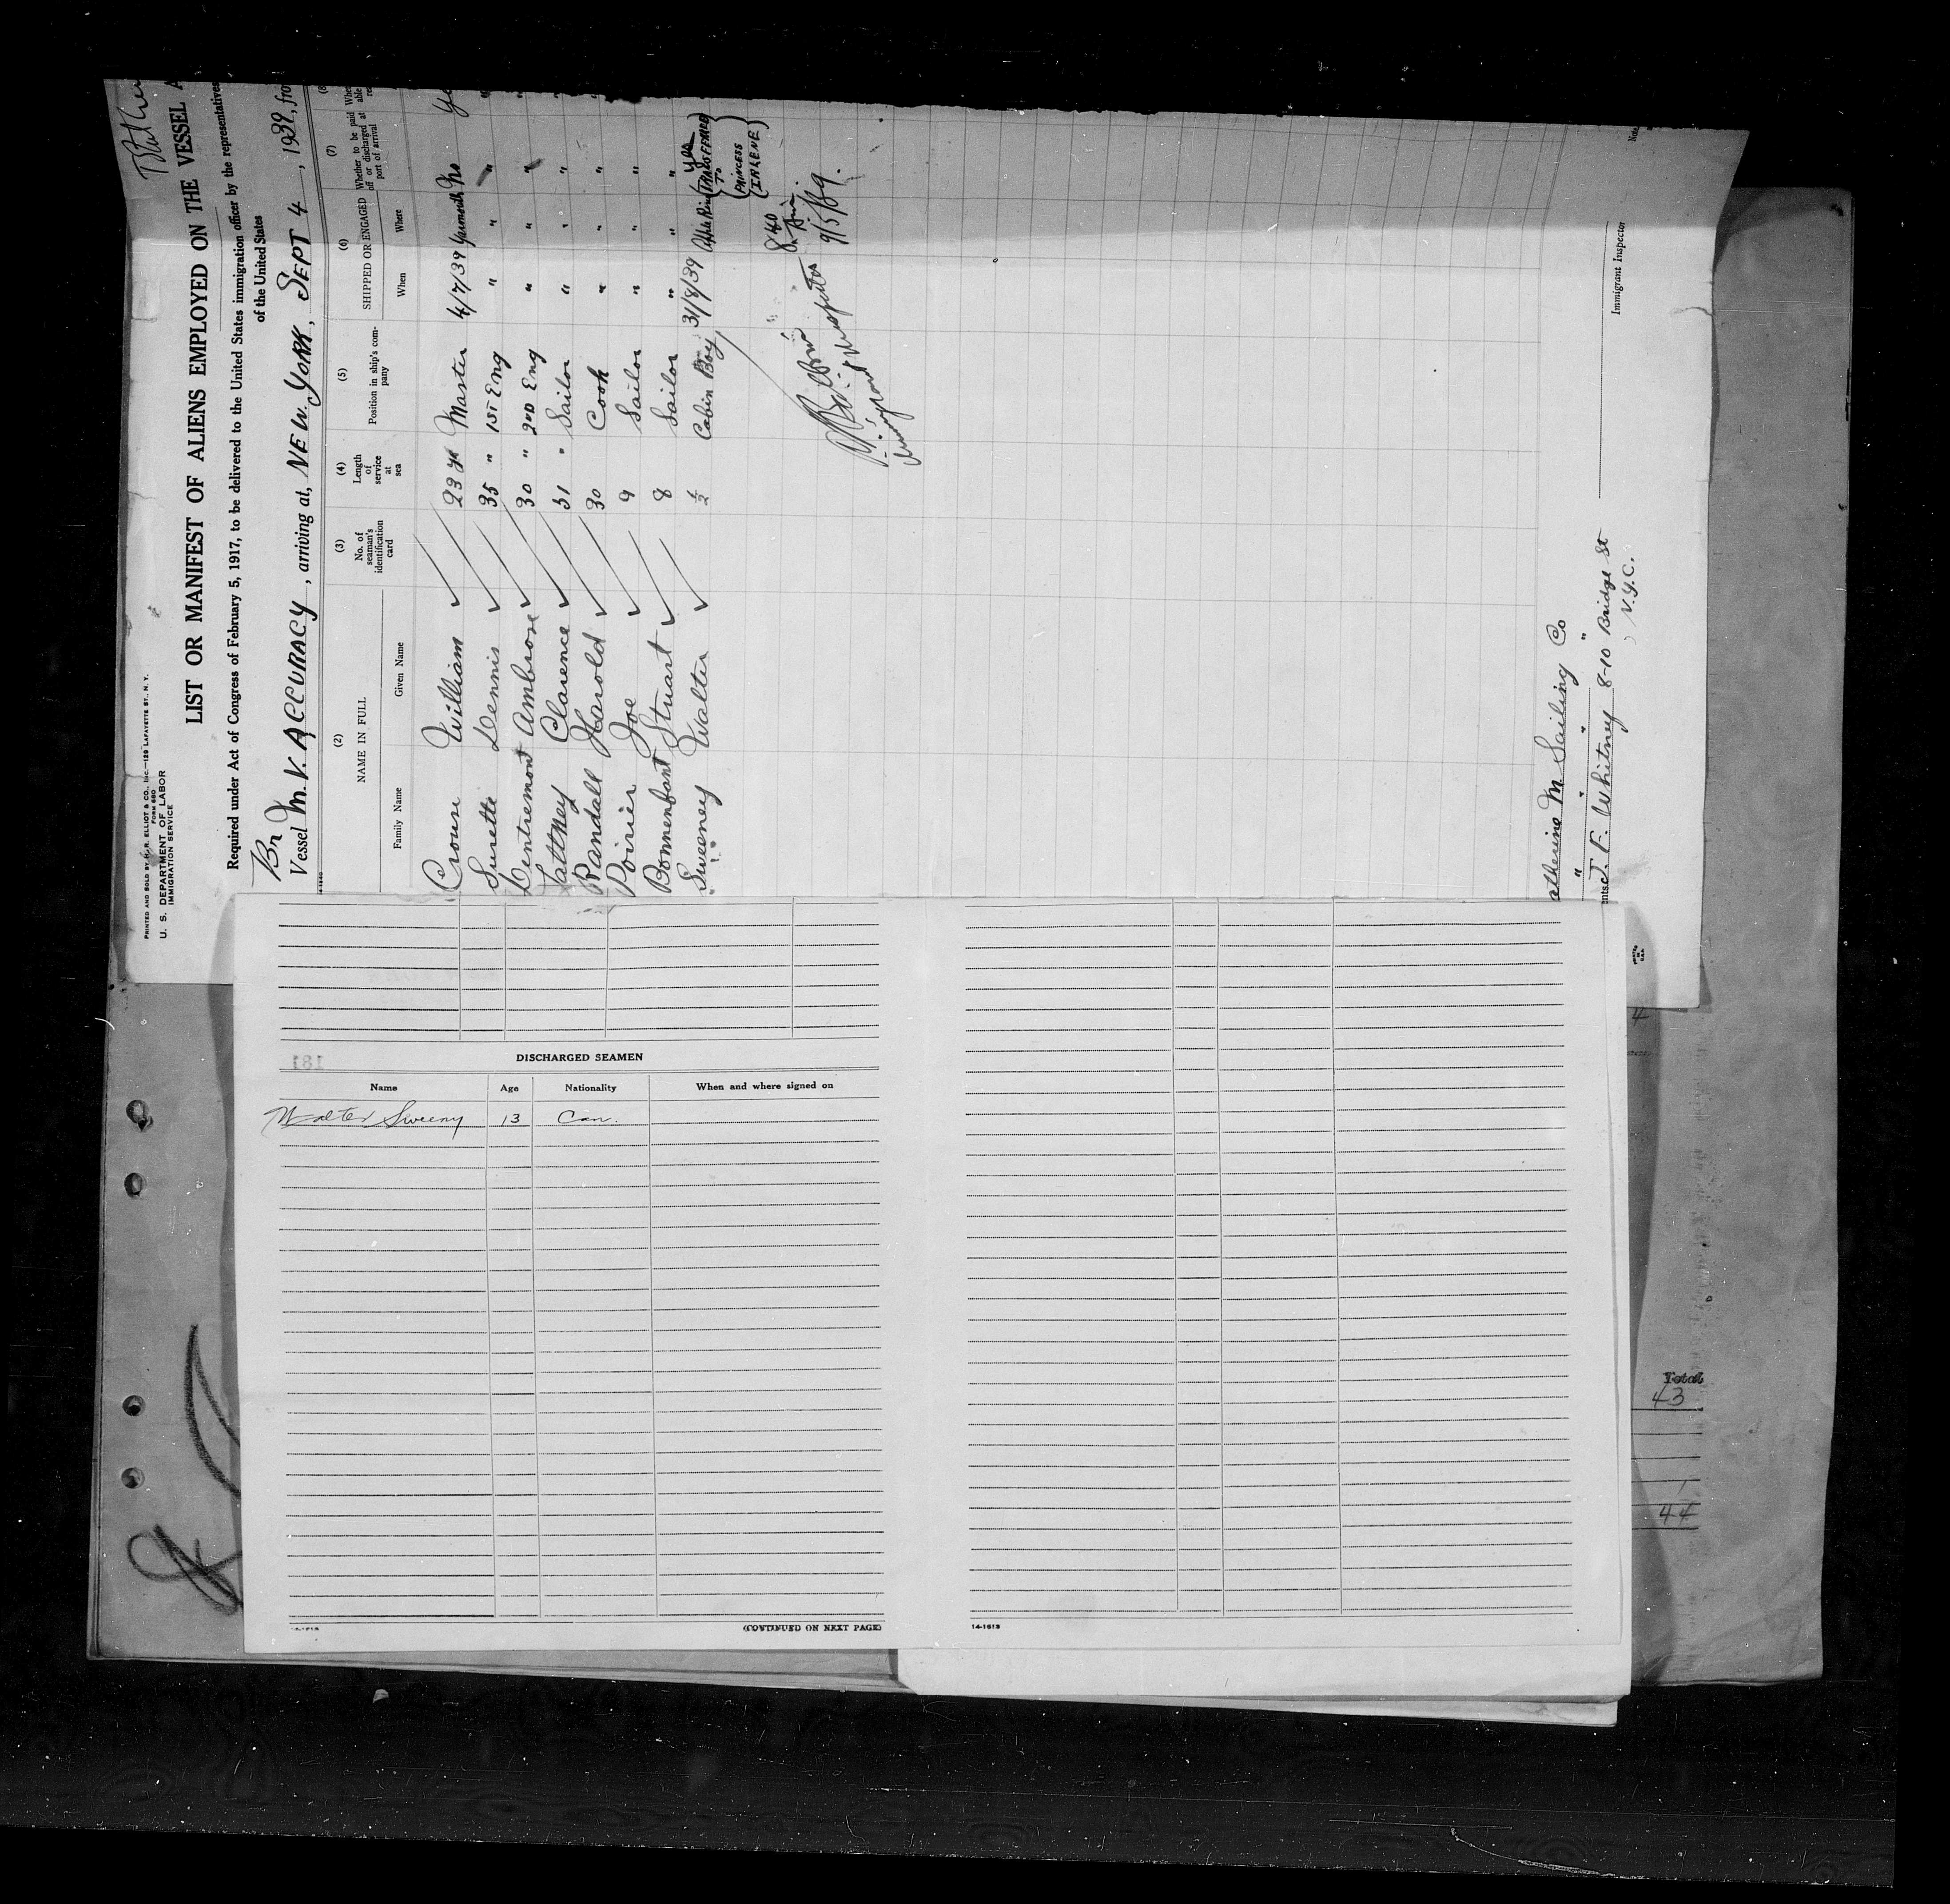 PRINTED AND SOLD BY H. R. ELLIOT & CO., INC.—129 LAFAYETTE ST., N. Y.
FORM 680
U. S. DEPARTMENT OF LABOR
IMMIGRATION SERVICE
LIST OR MANIFEST OF ALIENS EMPLOYED ON THE VESSEL A
Required under Act of Congress of February 5, 1917, to be delivered to the United States immigration officer by the representatives
of the United States
Br
Vessel M.V. ACCURACY, arriving at, NEW YORK, SEPT 4, 1939, fro
(2) (3) (4) (5) (6) (7) (8
NAME IN FULL
Family Name Given Name
No. of seaman's identification card
Length of service at sea
Position in ship's company
SHIPPED OR ENGAGED
When Where
Whether to be paid off or discharged at port of arrival
Crouse William 23 yr Master 4/7/39 Yarmouth No
Surette Dennis 35 " 1ST Eng " " "
Dentremont Ambrose 30 " 2ND Eng " " "
Clarence 51 " Sailor " " "
Randall Harold 30 Cook " " "
Poirier Joe 9 Sailor " " "
Bonnenfant Stuart 8 Sailor " " "
Sweeney Walter ½ Cabin Boy 31/8/39 Yes
TRANSFERRED
TO
PRINCESS
IRLENE
840
9/5/39.
atherine M Sailing Co
" " " "
ents J. F. Whitney 8-10 Bridge St
N.Y.C.
Immigrant Inspector
DISCHARGED SEAMEN
Name Age Nationality When and where signed on
Walter Sweeny 13 Can.
(CONTINUED ON NEXT PAGE)
14-1613
4
Total
43
1
44